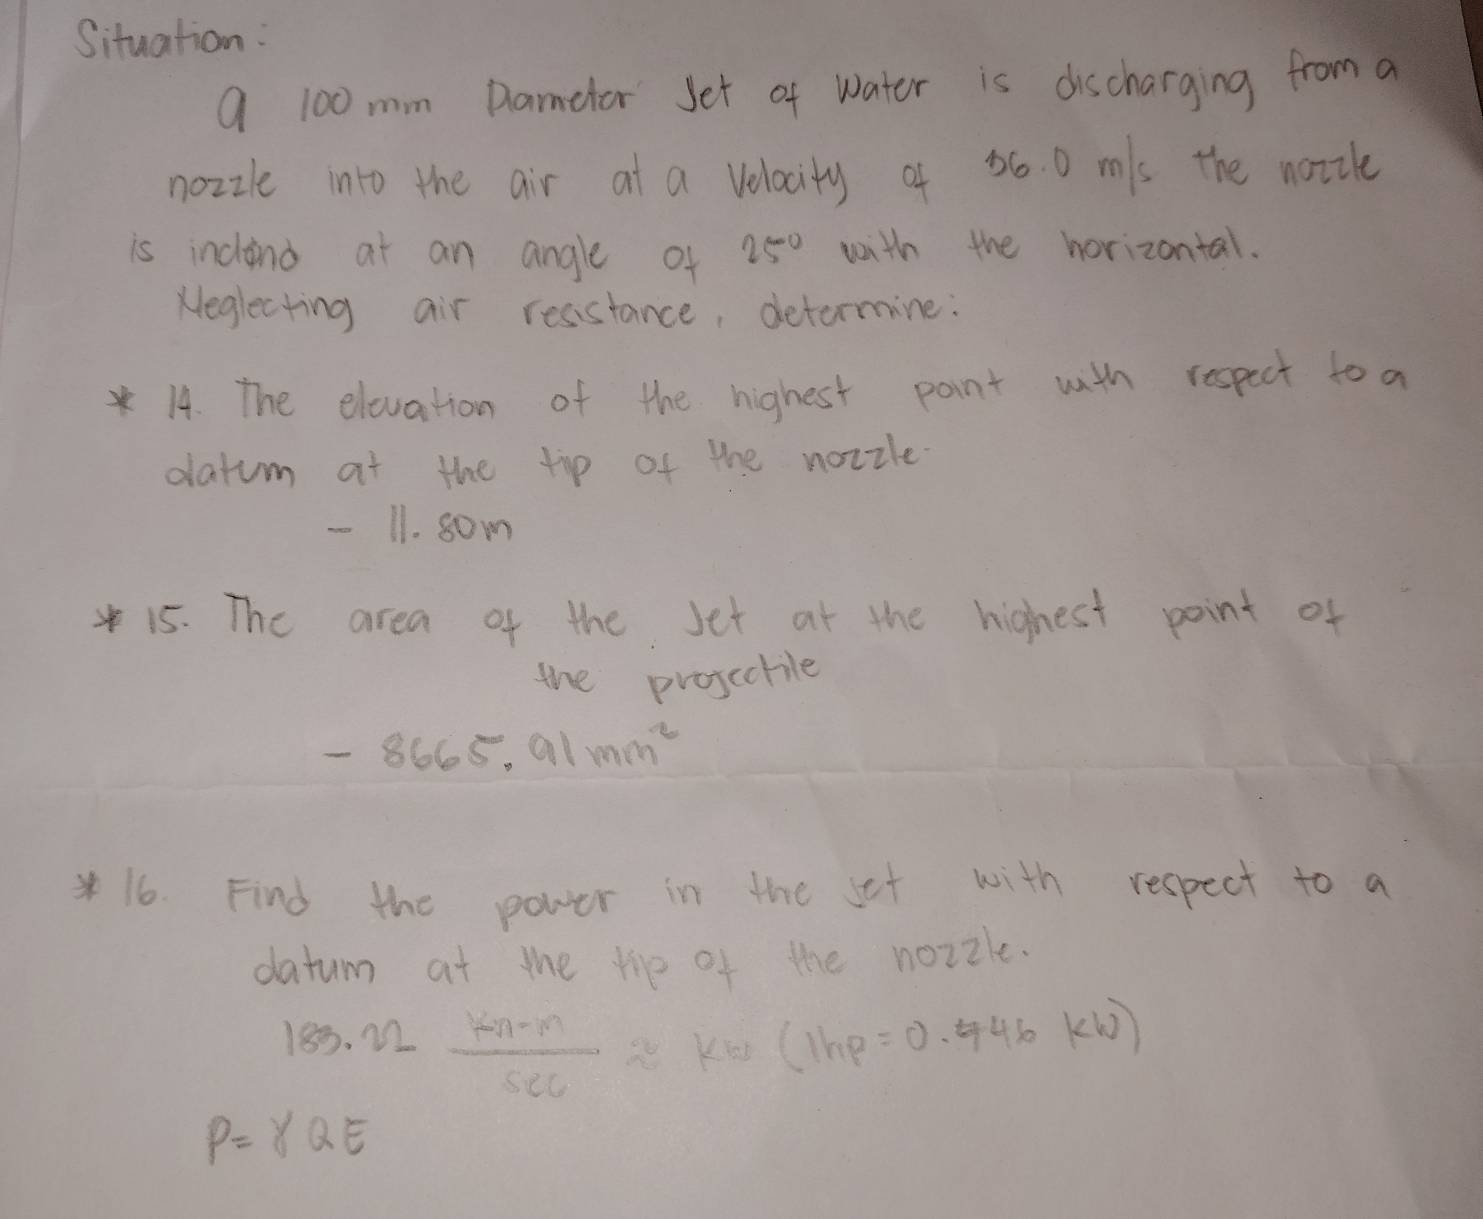 Situation:
a 100 mm Diameter Jet of Water is discharging from a
nozzle into the air at a Velocity of 36.0 m/s the nozzle
is inclind at an angle of 25° with the horizontal.
Neglecting air resistance, determine:
* 14. The elevation of the highest point with respect to a
datum at the tip of the nozzle.
- 11.80m
* 15. The area of the Jet at the highest point of
the projectile
- 8665.91mm²
* 16. Find the power in the jet with respect to a
datum at the tip of the nozzle.
183.22 kn-m / sec ≈ kw (1hp=0.746 kW)
P=γQE